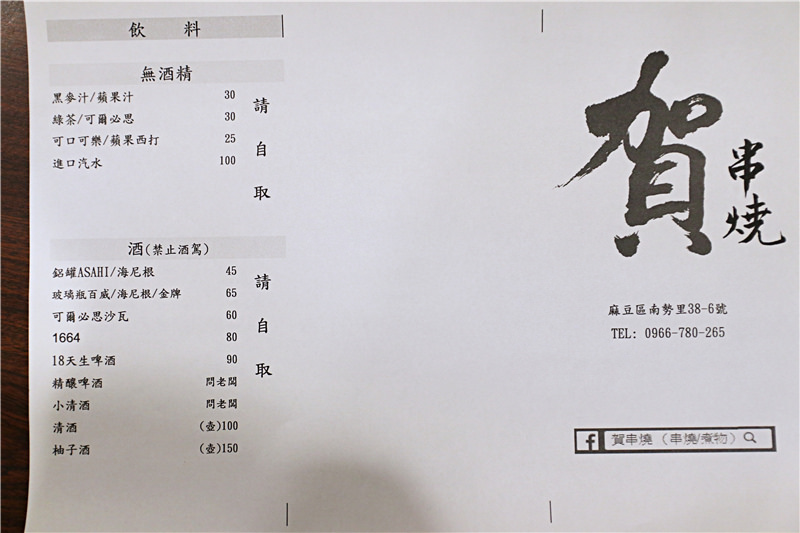 飲 料
無酒精
黑麥汁/蘋果汁 30
綠茶/可爾必思 30
可口可樂/蘋果西打 25
進口汽水 100
請自取
酒(禁止酒駕)
鋁罐ASAHI/海尼根 45
玻璃瓶百威/海尼根/金牌 65
可爾必思沙瓦 60
1664 80
18天生啤酒 90
精釀啤酒 問老闆
小清酒 問老闆
清酒 (壺)100
柚子酒 (壺)150
請自取
賀
串燒
麻豆區南勢里38-6號
TEL: 0966-780-265
f 賀串燒（串燒/煮物）